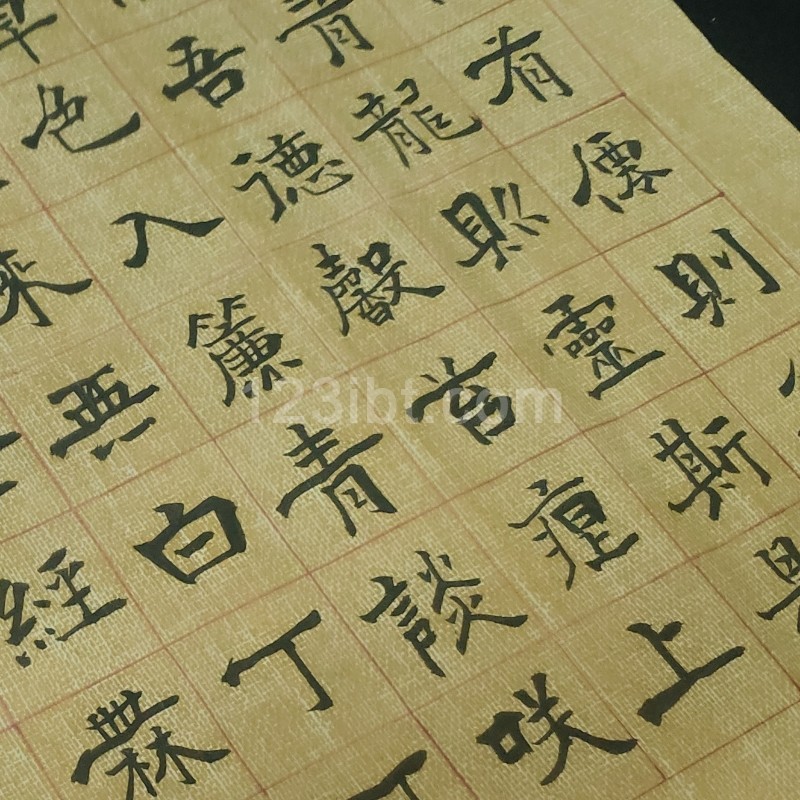 有僊則
有龍則靈斯是
吾德馨苔痕上
草色入簾青談咲
來無白丁
經無
123ibt.com